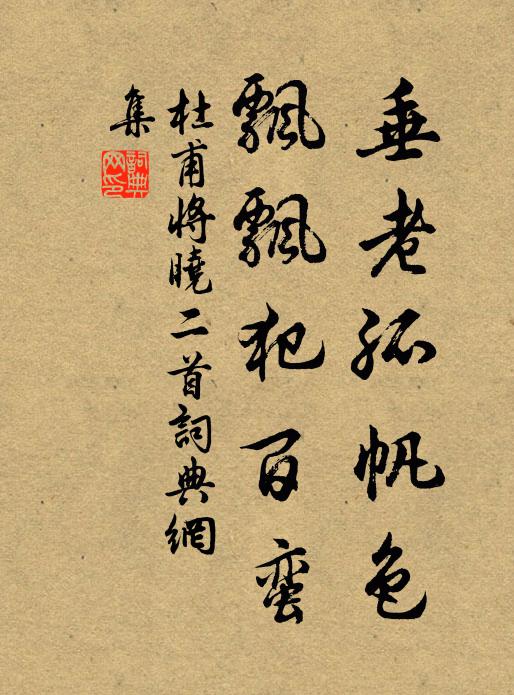 垂老孤帆色
飄飄犯百蠻
杜甫將曉二首詞典網
集
詞典
网印